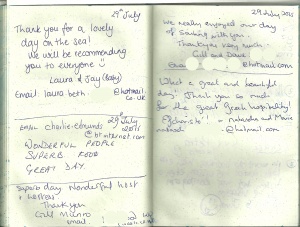 29 July
Thank you for a lovely
day on the sea!
We will be recommending
you to everyone
Laura & Jay (Baby)
Email: laura.beth @hotmail.
co.uk
29 July
2011
EMAIL charlie-edmunds
@btinternet.com
WONDERFUL PEOPLE
SUPERB FOOD
GREAT DAY.
Superb day Wonderful host
+ hostess.
Thank you
Munro
email
29 July 2011
We really enjoyed our day
of Sailing with you.
Thank you very much.
Gill and Dave
@hotmail.com
What a great and beautiful
day! Thank you so much
for the great Greek hospitality!
and Marie
@hotmail.com